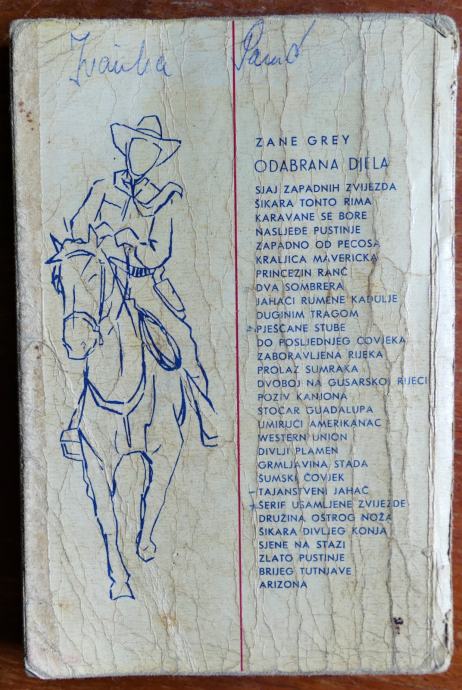 Ivanka
ZANE GREY
ODABRANA DJELA
SJAJ ZAPADNIH ZVIJEZDA
ŠIKARA TONTO RIMA
KARAVANE SE BORE
NASLJEĐE PUSTINJE
ZAPADNO OD PECOSA
KRALJICA MAVERICKA
PRINCEZIN RANČ
DVA SOMBRERA
JAHAČI RUMENE KADULJE
DUGINIM TRAGOM
PJEŠČANE STUBE
DO POSLJEDNJEG ČOVJEKA
ZABORAVLJENA RIJEKA
PROLAZ SUMRAKA
DVOBOJ NA GUSARSKOJ RIJECI
POZIV KANJONA
STOČAR GUADALUPA
UMIRUĆI AMERIKANAC
WESTERN UNION
DIVLJI PLAMEN
GRMLJAVINA STADA
ŠUMSKI ČOVJEK
TAJANSTVENI JAHAČ
ŠERIF USAMLJENE ZVIJEZDE
DRUŽINA OŠTROG NOŽA
ŠIKARA DIVLJEG KONJA
SJENE NA STAZI
ZLATO PUSTINJE
BRIJEG TUTNJAVE
ARIZONA